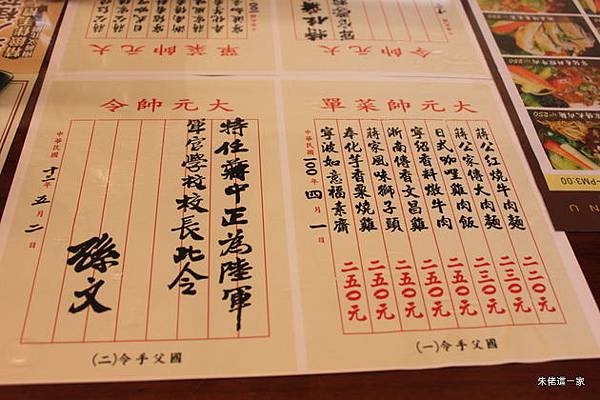 大元帥菜單
蔣公紅燒牛肉麵 二二〇元
蔣公家傳大肉麵 二三〇元
日式咖哩雞肉飯 二三〇元
寧紹香料燉牛肉 二五〇元
浙南傳香文昌雞 二五〇元
蔣家風味獅子頭 二五〇元
奉化芋香栗燒雞 二五〇元
寧波如意福素齋 二五〇元
中華民國一〇〇年四月一日
國父手令(一)
大元帥令
特任蔣中正為陸軍
軍官學校校長此令
孫文
中華民國十三年五月二日
國父手令(二)
大元帥菜單
大元帥令
PM3:00
朱佬這一家